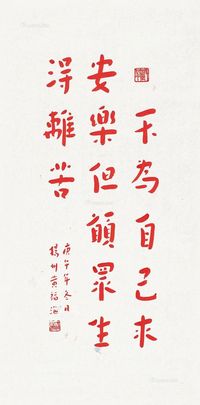 不為自己求
安樂但願眾生
得離苦
庚午年冬日
揚州黃福海